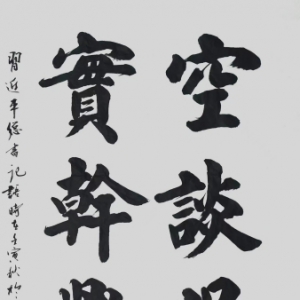 空談
實幹
習近平總書記語時在壬寅秋於